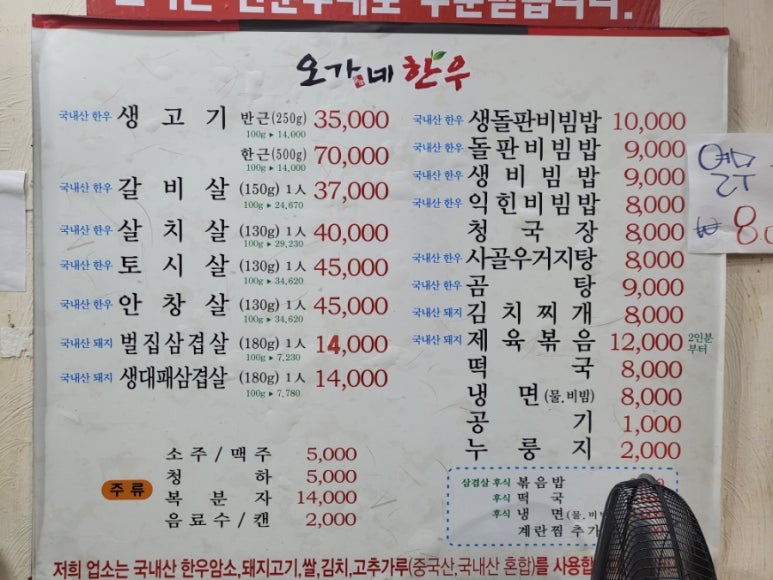 오감네한우
국내산 한우 생고기 반근(250g) 35,000
100g ▶ 14,000
한근(500g) 70,000
100g ▶ 14,000
국내산 한우 갈비살 (150g) 1人 37,000
100g ▶ 24,670
국내산 한우 살치살 (130g) 1人 40,000
100g ▶ 29,230
국내산 한우 토시살 (130g) 1人 45,000
100g ▶ 34,620
국내산 한우 안창살 (130g) 1人 45,000
100g ▶ 34,620
국내산 돼지 벌집삼겹살 (180g) 1人 14,000
100g ▶ 7,230
국내산 돼지 생대패삼겹살 (180g) 1人 14,000
100g ▶ 7,780
주류
소주/맥주 5,000
청하 5,000
복분자 14,000
음료수/캔 2,000
국내산 한우 생돌판비빔밥 10,000
국내산 한우 돌판비빔밥 9,000
국내산 한우 생비빔밥 9,000
국내산 한우 익힌비빔밥 8,000
청국장 8,000
국내산 한우 사골우거지탕 8,000
국내산 한우 곰탕 9,000
국내산 돼지 김치찌개 8,000
국내산 돼지 제육볶음 12,000 2인분부터
떡국 8,000
냉면(물.비빔) 8,000
공기 1,000
누룽지 2,000
삼겹살 후식 볶음밥
후식 떡국
후식 냉면
계란찜 추가
열무
₩8.0
저희 업소는 국내산 한우암소,돼지고기,쌀,김치,고추가루(중국산,국내산 혼합)를 사용합